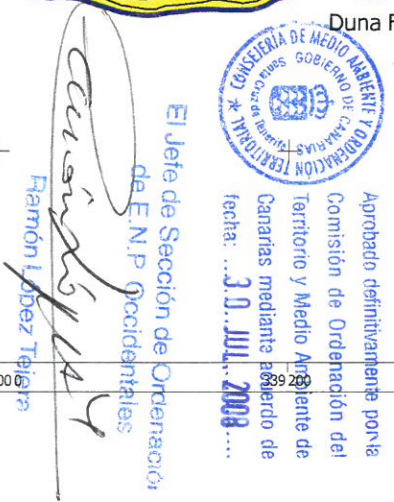 Duna F
CONSEJERÍA DE MEDIO AMBIENTE Y ORDENACIÓN TERRITORIAL
GOBIERNO DE CANARIAS
Santa Cruz de
Aprobado definitivamente por la
Comisión de Ordenación del
Territorio y Medio Ambiente de
Canarias mediante acuerdo de
fecha: ...3 0. JUL. 2008....
El Jefe de Sección de Ordenación
de E.N.P. Occidentales
Ramón López Tejera
000
339200